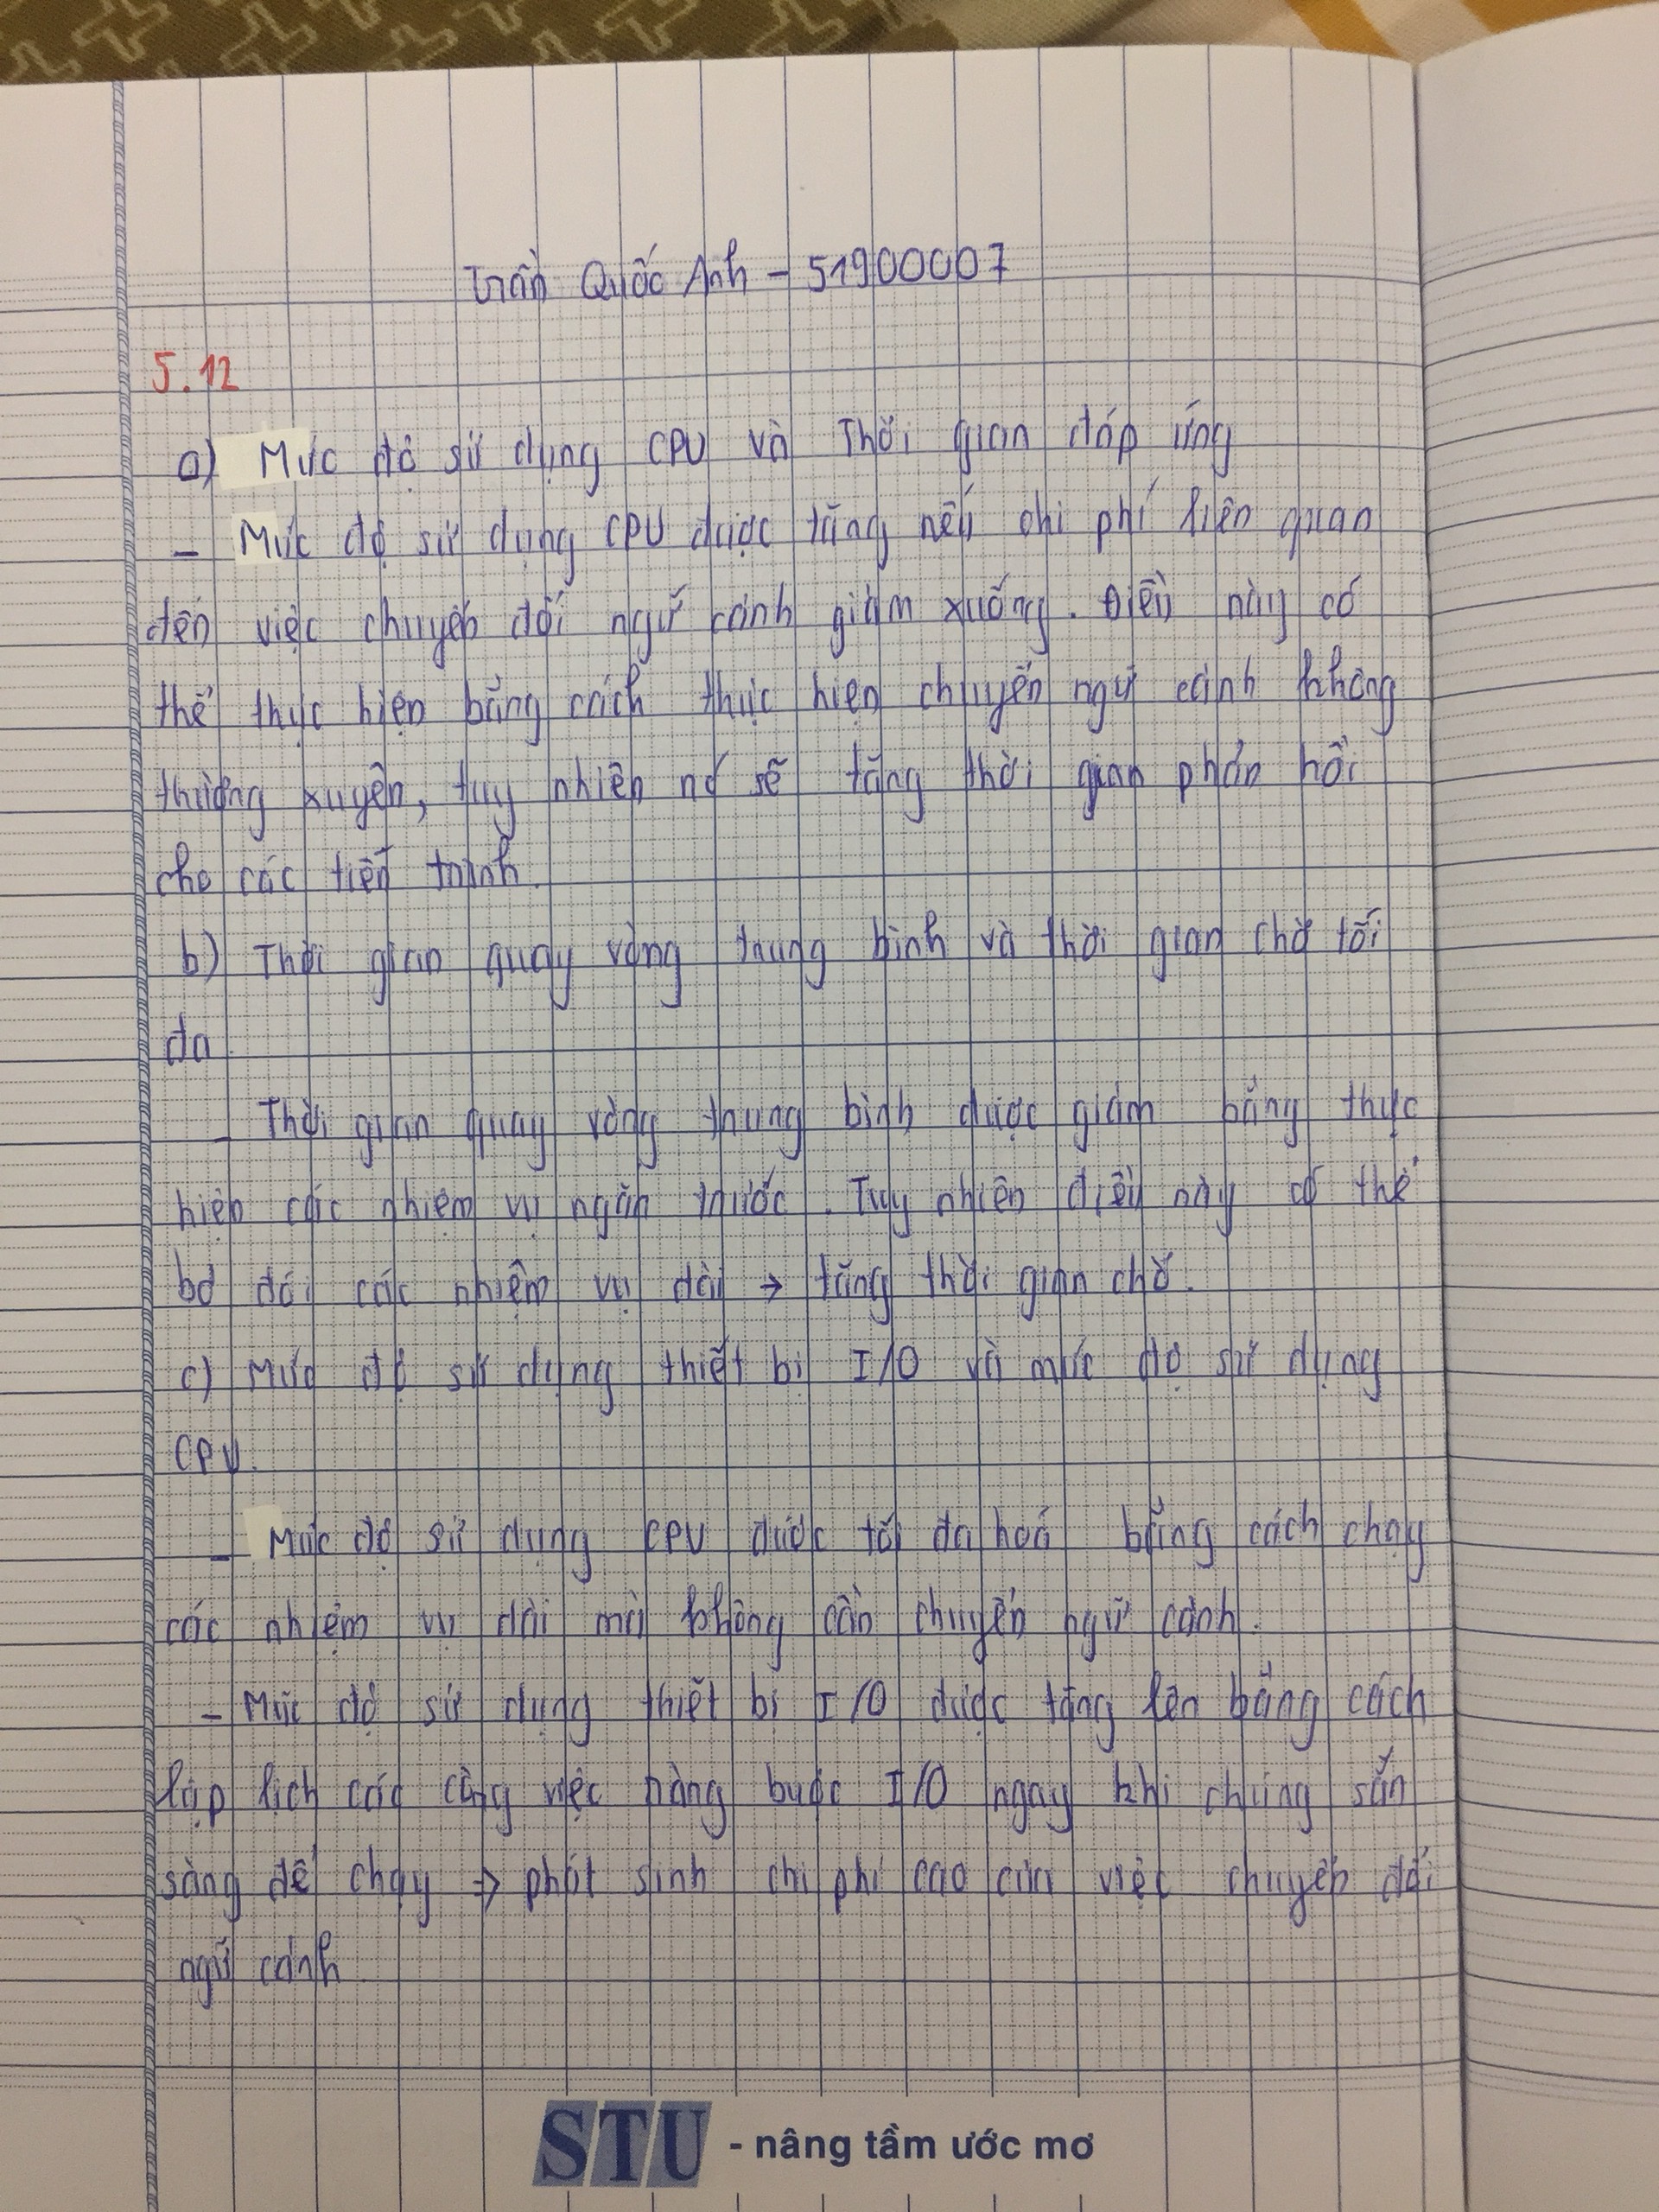 Trần Quốc Anh - 51900007
5.12
a) Mức độ sử dụng CPU và Thời gian đáp ứng
- Mức độ sử dụng CPU được tăng nếu chi phí liên quan
đến việc chuyển đổi ngữ cảnh giảm xuống. Điều này có
thể thực hiện bằng cách thực hiện chuyển ngữ cảnh không
thường xuyên, tuy nhiên nó sẽ tăng thời gian phản hồi
cho các tiến trình.
b) Thời gian quay vòng trung bình và thời gian chờ tối
đa
- Thời gian quay vòng trung bình được giảm bằng thực
hiện các nhiệm vụ ngắn trước. Tuy nhiên điều này có thể
bỏ đói các nhiệm vụ dài → tăng thời gian chờ.
c) Mức độ sử dụng thiết bị I/O và mức độ sử dụng
CPU.
- Mức độ sử dụng CPU được tối đa hoá bằng cách chạy
các nhiệm vụ dài mà không cần chuyển ngữ cảnh.
- Mức độ sử dụng thiết bị I/O được tăng lên bằng cách
lập lịch các công việc ràng buộc I/O ngay khi chúng sẵn
sàng để chạy → phát sinh chi phí cao của việc chuyển đổi
ngữ cảnh
STU - nâng tầm ước mơ